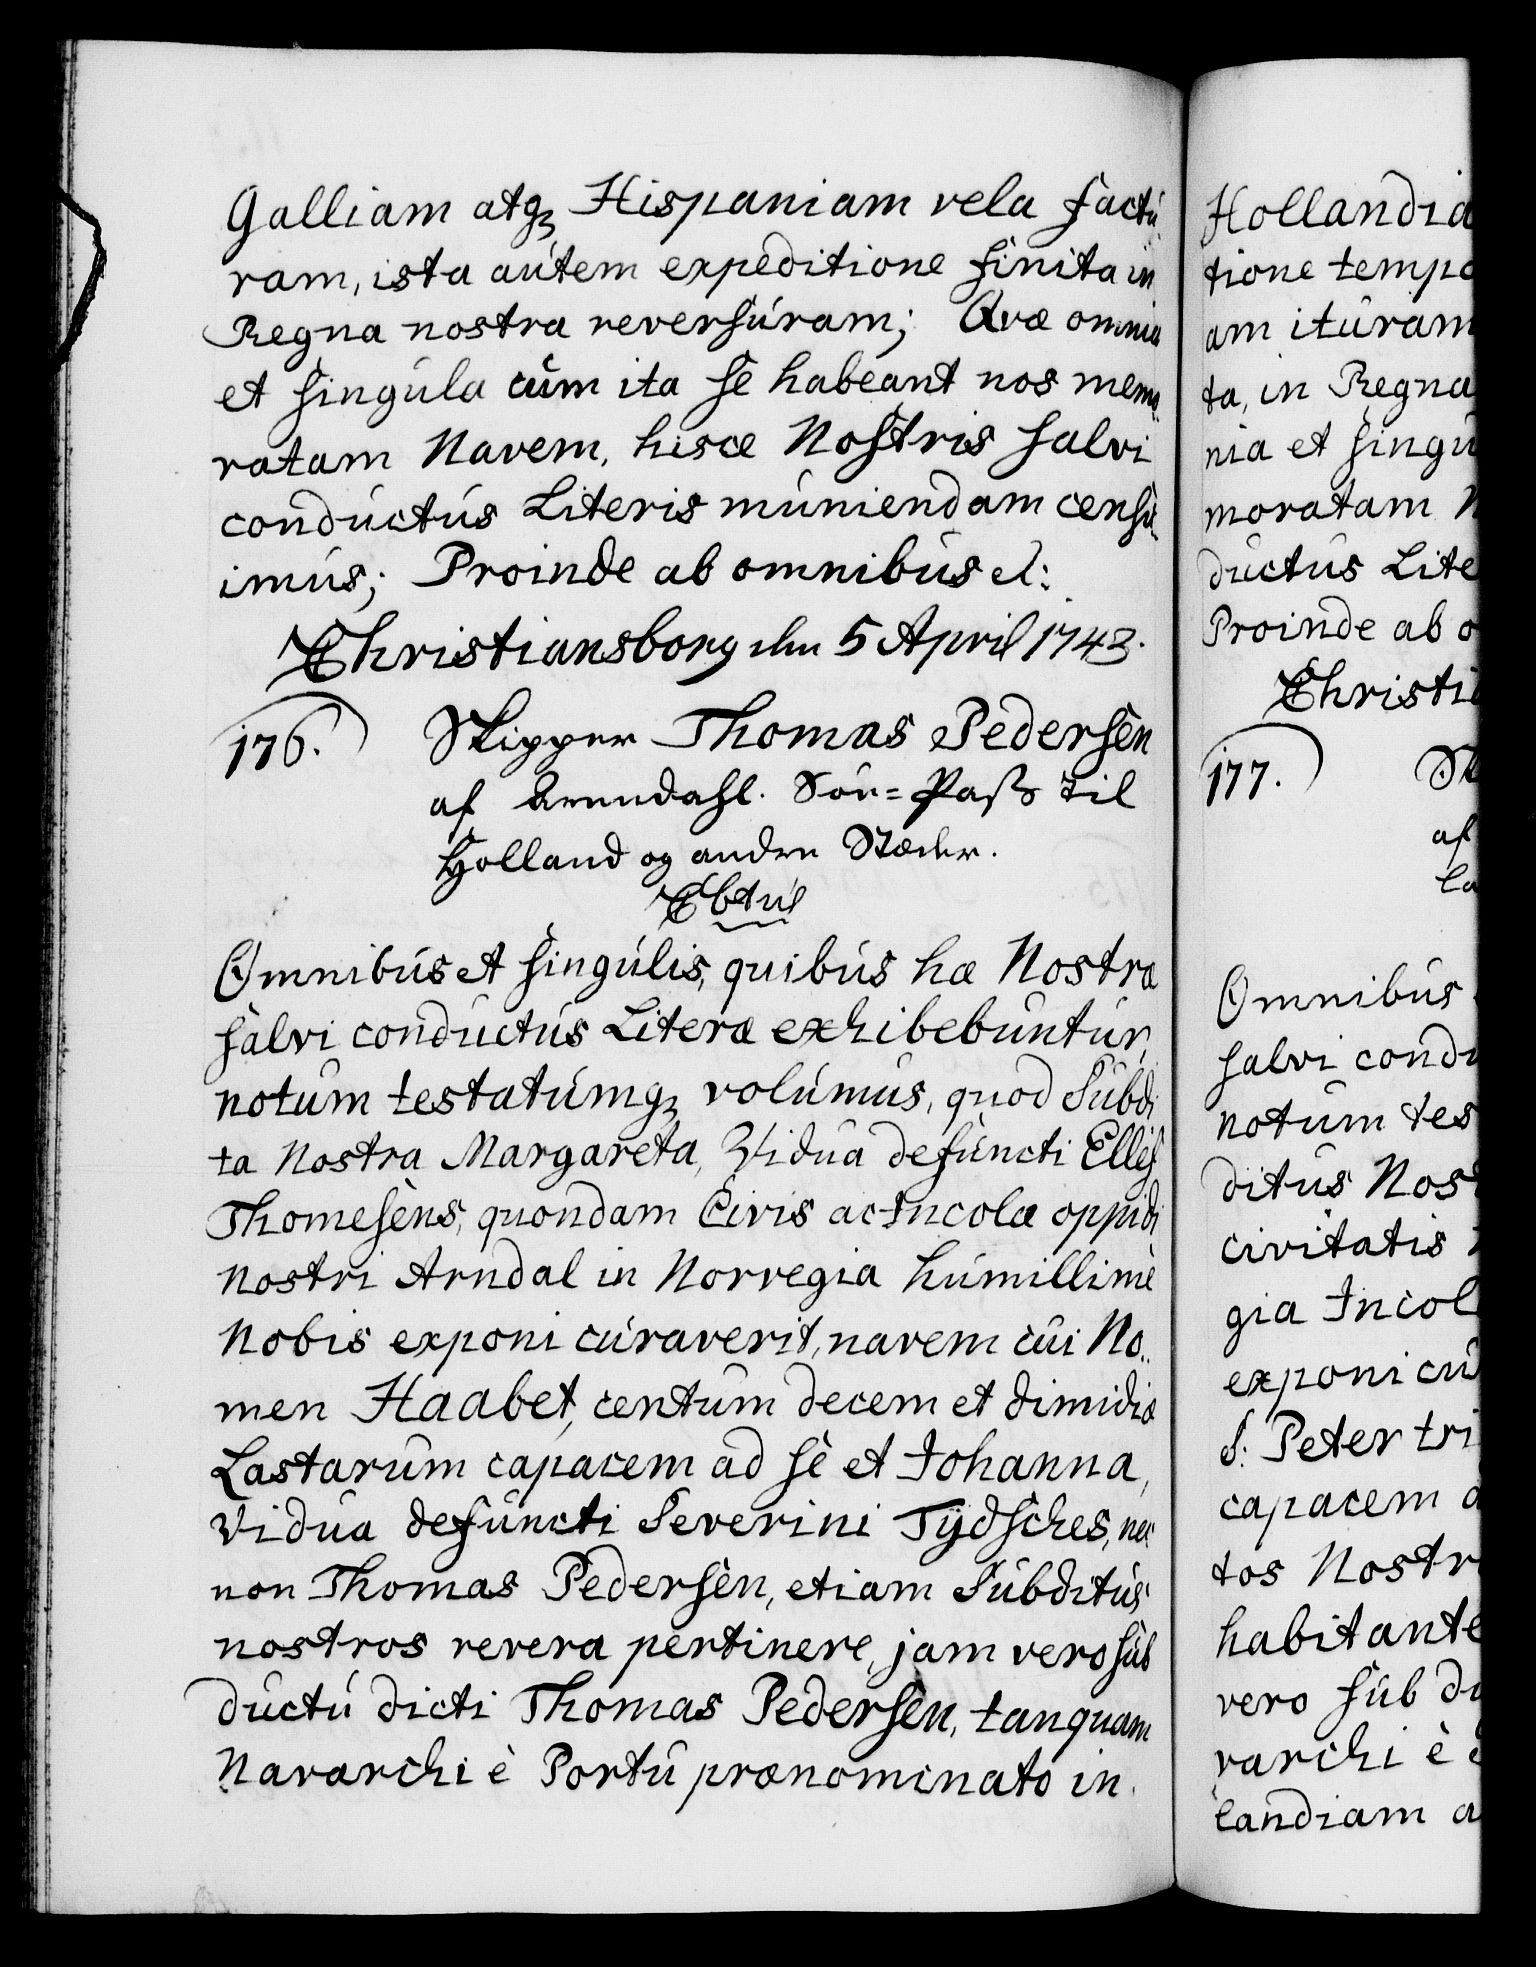 Galliam atq₃ Hispaniam vela factu
ram, ista autem expeditione finita in
Regna nostra reversuram; Qvæ omnia
et singula cum ita se habeant nos memo
ratam Navem, hisce Nostris salvi
conductus Literis muniendam censu
imus; Proinde ab omnibus el:
Christiansborg den 5 April 1743.
176. Skipper Thomas Pedersen
af Arendahl. Söe=Pass til
Holland og andre Stæder.
Omnibus et singulis, quibus hæ Nostræ
salvi conductus Literæ exhibebuntur,
notum testatumq₃ volumus, quod Subdi
ta Nostra Margareta, Vidua defuncti Ellef
Thomesens, quondam Civis ac Incolæ oppidi
Nostri Arndal in Norvegia humillimè
Nobis exponi curaverit, navem cui No..
men Haabet, centum decem et dimidiæ
Lastarum capacem ad se et Johanna,
Vidua defuncti Severini Tÿdsches, nec
non Thomas Pedersen, etiam Subditus
nostros revera pertinere, jam vero sub
ductu dicti Thomas Pedersen, tanquam
Navarchi è Portu prænominato in
Hollandia
tione tempo
am ituram
ta, in Regna
nia et singu
moratam N
ductus Lite
Proinde ab o
Christia
177. Sk
af
La
Omnibus
salvi condu
notum tes
ditus Nost
civitatis
gia Incol
exponi cu
S: Peter tri
capacem a
tos Nostr
habitante
vero sub du
varchi è
landiam a